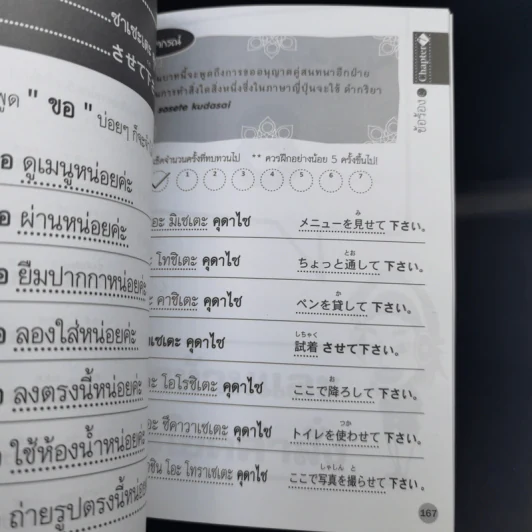 ซาเซะเตะ
させて下
พูด " ขอ " บ่อยๆ ก็จะ
อ ดูเมนูหน่อยค่ะ
อ ผ่านหน่อยค่ะ
อ ยืมปากกาหน่อยค่ะ
อ ลองใส่หน่อยค่ะ
ลงตรงนี้หน่อยค่ะ
ใช้ห้องน้ำหน่อยค่ะ
ถ่ายรูปตรงนี้หน่อย
Chapter 7
ข้อร้อง
นบทนี้จะพูดถึงการขออนุญาตคู่สนทนาอีกฝ่าย
นการทำสิ่งใดสิ่งหนึ่งซึ่งในภาษาญี่ปุ่นจะใช้ คำกริยา
sasete kudasai
เช็คจำนวนครั้งที่ทบทวนไป ** ควรฝึกอย่างน้อย 5 ครั้งขึ้นไป!
1 2 3 4 5 6 7
อะ มิเซเตะ คุดาไซ メニューを見せて 下さい。
み
โทชิเตะ คุดาไซ ちょっと通して 下さい。
とお
คาชิเตะ คุดาไซ ペンを貸して 下さい。
か
เซเตะ คุดาไซ 試着 させて下さい。
しちゃく
โอโรชิเตะ คุดาไซ ここで降ろして 下さい。
お
อะ ซึคาวาเซเตะ คุดาไซ トイレを使わせて 下さい。
つか
ชิน โอะ โทราเซเตะ คุดาไซ ここで写真を撮らせて 下さい。
しゃしん と
167